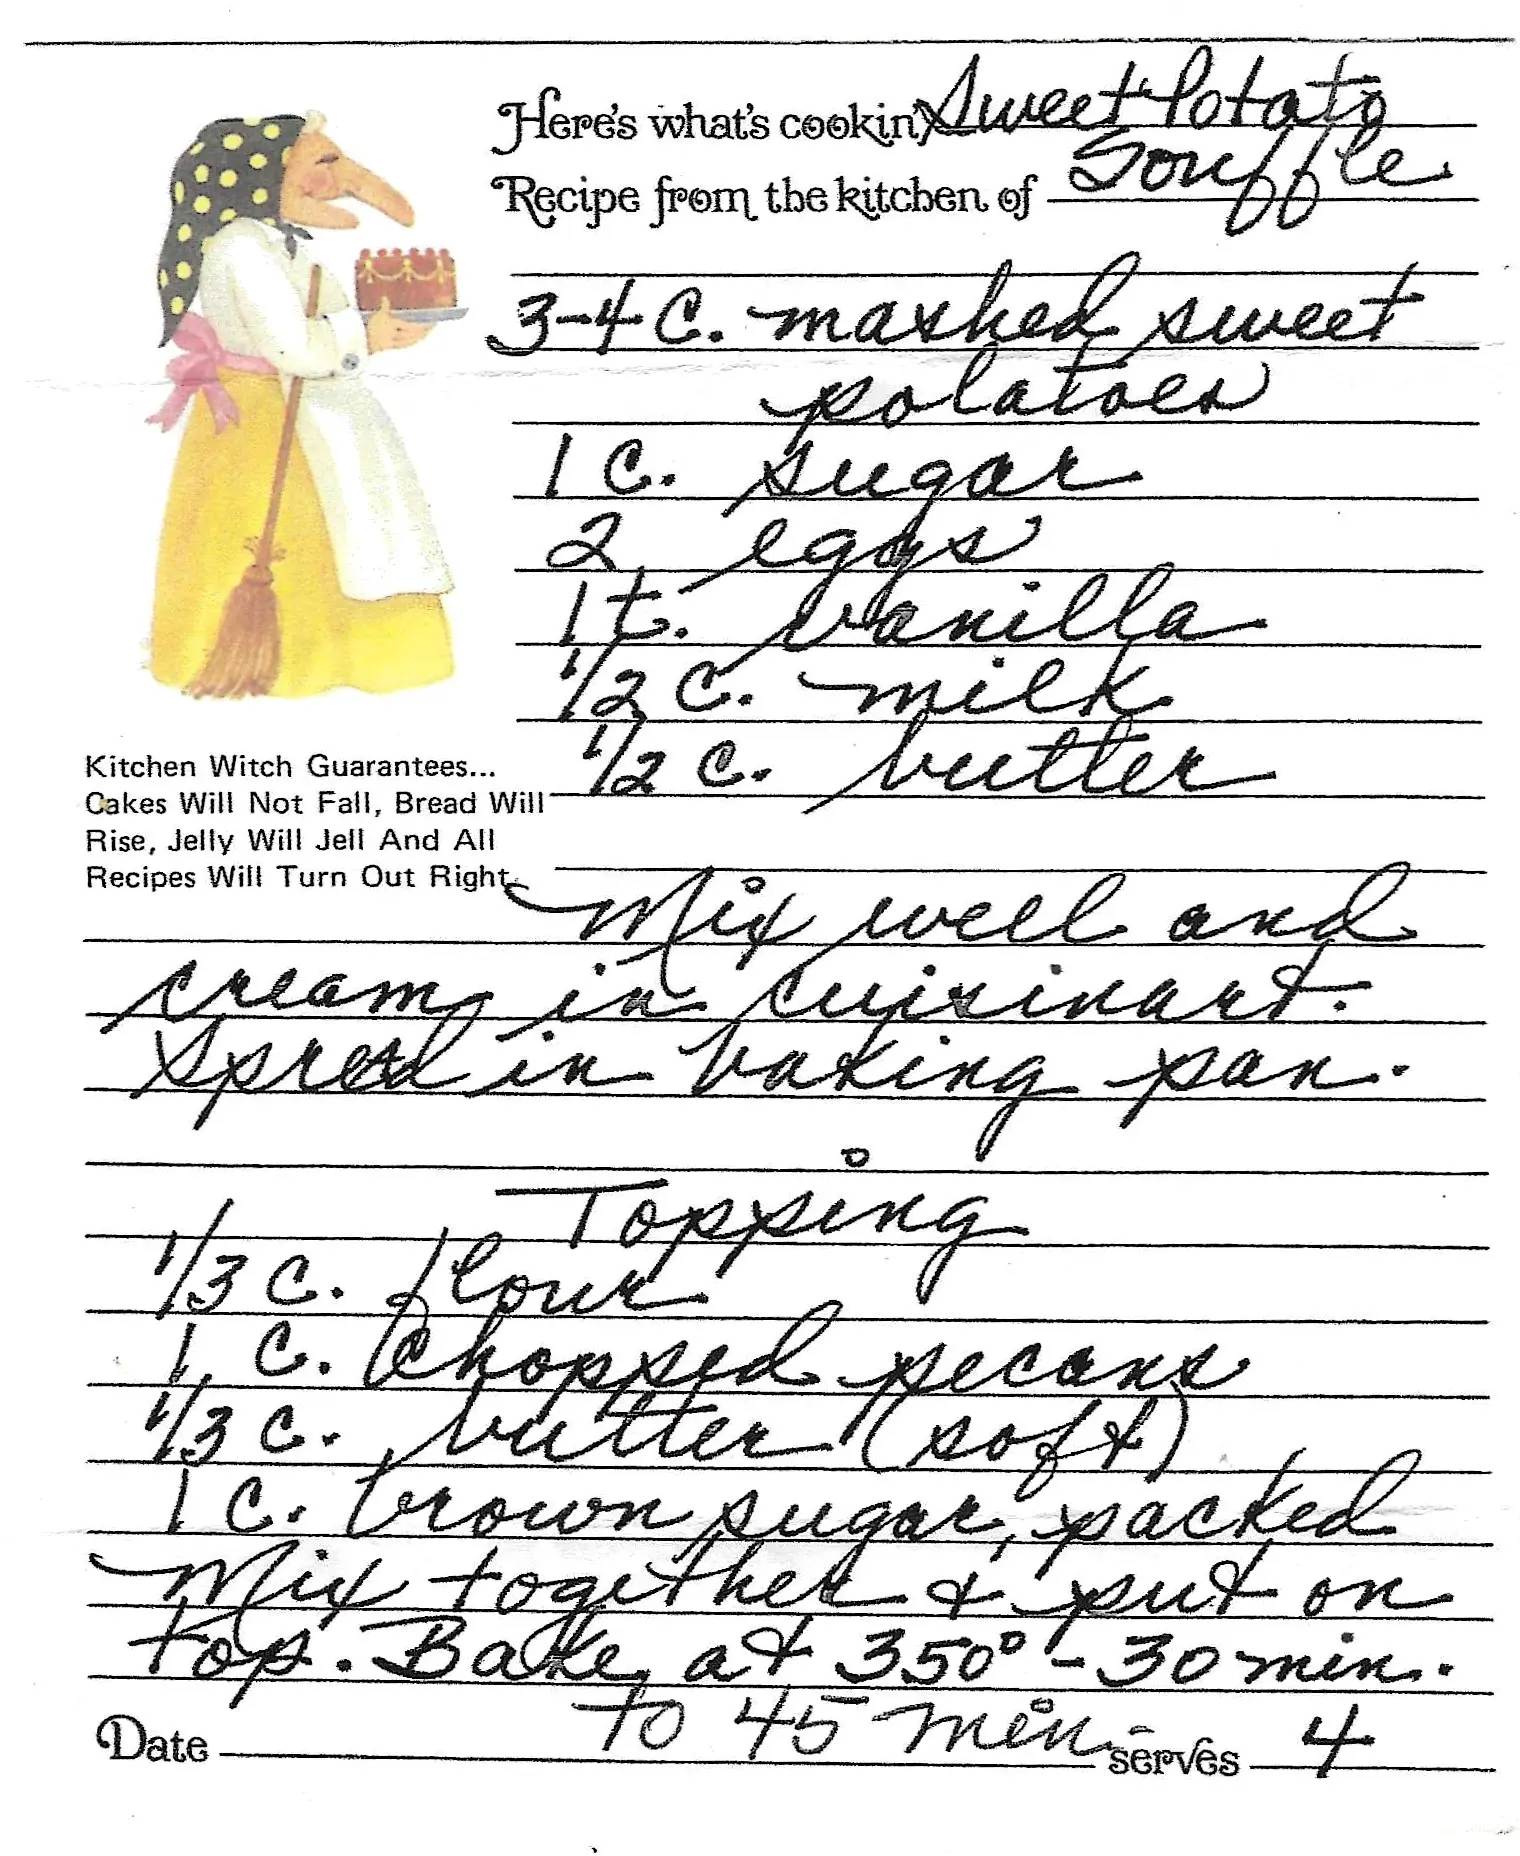 Here's what's cookin' Sweet Potato
Recipe from the kitchen of Souffle
3-4 C. mashed sweet
potatoes
1 C. sugar
2 eggs
1 t. vanilla
1/2 C. milk
1/2 C. butter
Kitchen Witch Guarantees...
Cakes Will Not Fall, Bread Will
Rise, Jelly Will Jell And All
Recipes Will Turn Out Right.
Mix well and
cream in cuisinart.
Spread in baking pan.
Topping
1/3 C. flour
1 C. chopped pecans
1/3 C. butter (soft)
1 C. brown sugar, packed
Mix together & put on
top. Bake at 350° - 30 min.
to 45 min.
Date serves 4